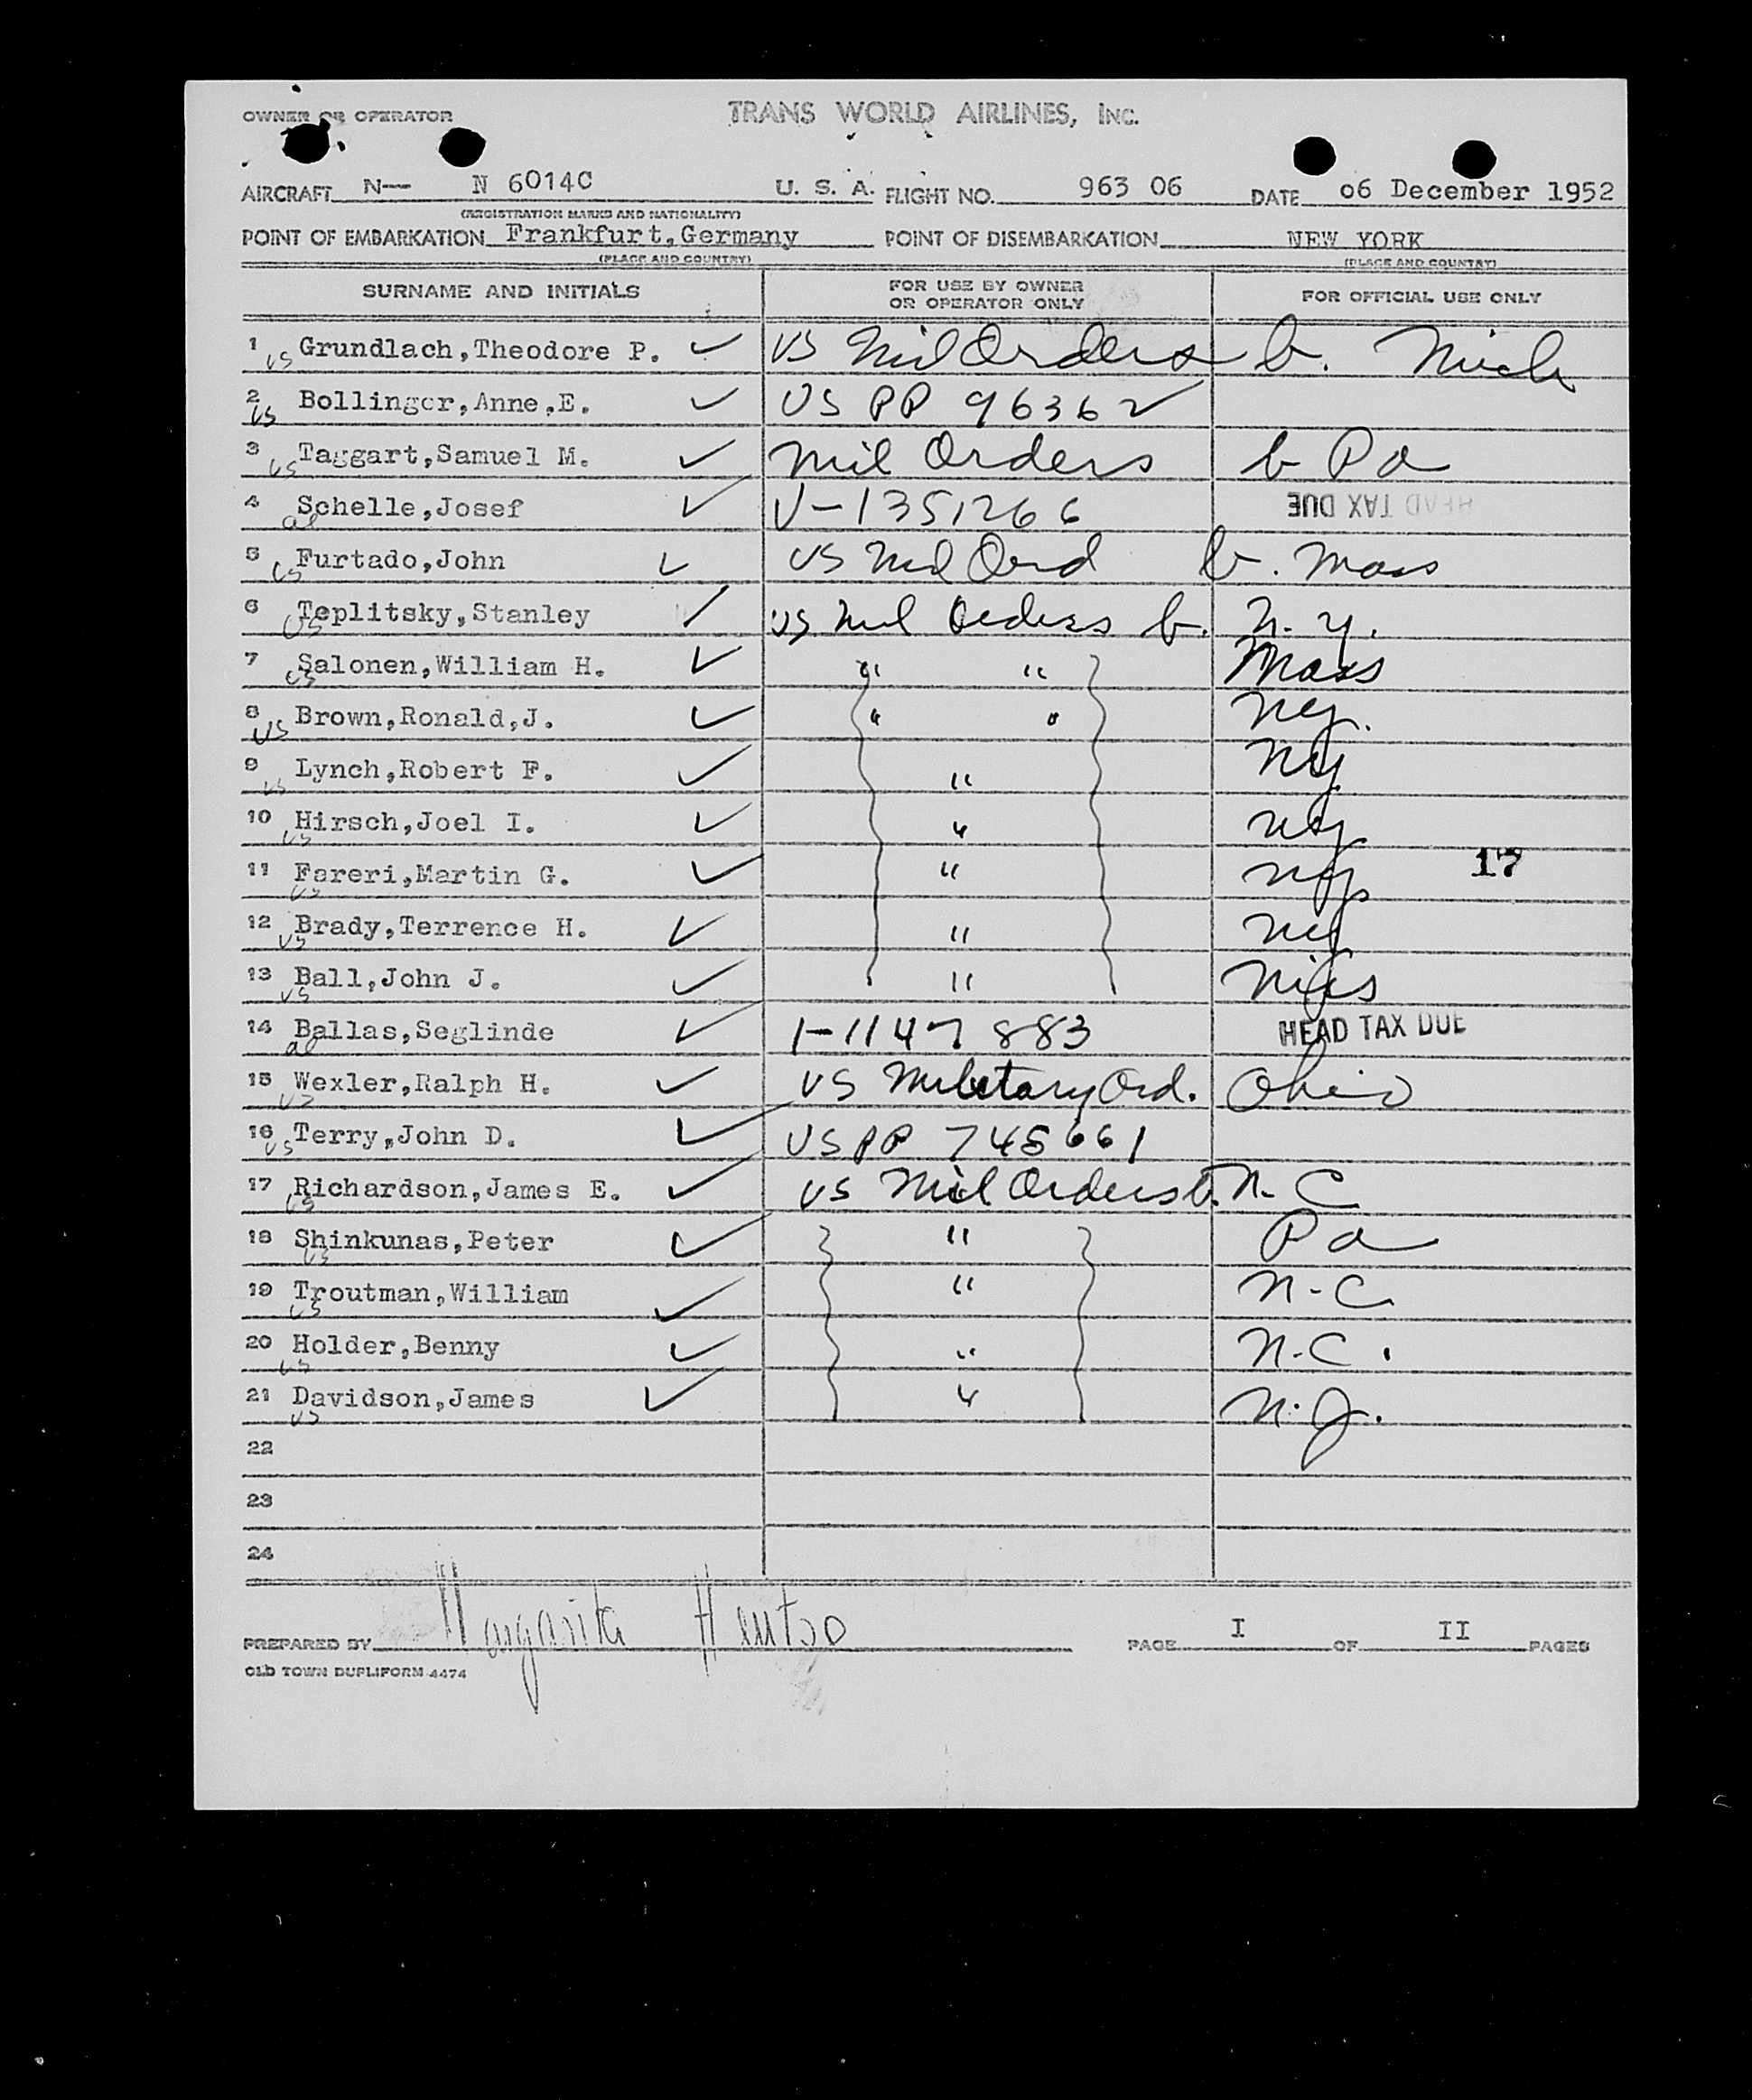 OWNER OR OPERATOR TRANS WORLD AIRLINES, INC.
AIRCRAFT N— N 6014C U. S. A. FLIGHT NO. 963 06 DATE 06 December 1952
(REGISTRATION MARKS AND NATIONALITY)
POINT OF EMBARKATION Frankfurt,Germany POINT OF DISEMBARKATION NEW YORK
(PLACE AND COUNTRY) (PLACE AND COUNTRY)
SURNAME AND INITIALS FOR USE BY OWNER OR OPERATOR ONLY FOR OFFICIAL USE ONLY
1 US Grundlach,Theodore P. ✓ US Mil Orders b. Mich
2 US Bollinger,Anne,E. ✓ US PP 96362
3 US Taggart,Samuel M. ✓ Mil Orders b Pa
4 al Schelle,Josef ✓ V-1351266 HEAD TAX DUE
5 US Furtado,John ✓ US Mil Ord b. Mass
6 US Teplitsky,Stanley ✓ US Mil Orders b. N.Y.
7 US Salonen,William H. ✓ " " Mass
8 US Brown,Ronald,J. ✓ " " NY.
9 US Lynch,Robert F. ✓ " NY
10 US Hirsch,Joel I. ✓ " NY
11 US Fareri,Martin G. ✓ " NY 17
12 US Brady,Terrence H. ✓ " NY
13 US Ball,John J. ✓ "
14 al Ballas,Seglinde ✓ I-1147883 HEAD TAX DUE
15 US Wexler,Ralph H. ✓ US Military Ord. Ohio
16 US Terry,John D. ✓ US PP 745661
17 US Richardson,James E. ✓ US Mil Orders b. N.C
18 US Shinkunas,Peter ✓ " Pa
19 US Troutman,William ✓ " N-C
20 US Holder,Benny ✓ " N.C.
21 US Davidson,James ✓ " N.J.
22
23
24
PREPARED BY PAGE I OF II PAGES
OLD TOWN DUPLIFORM 4474